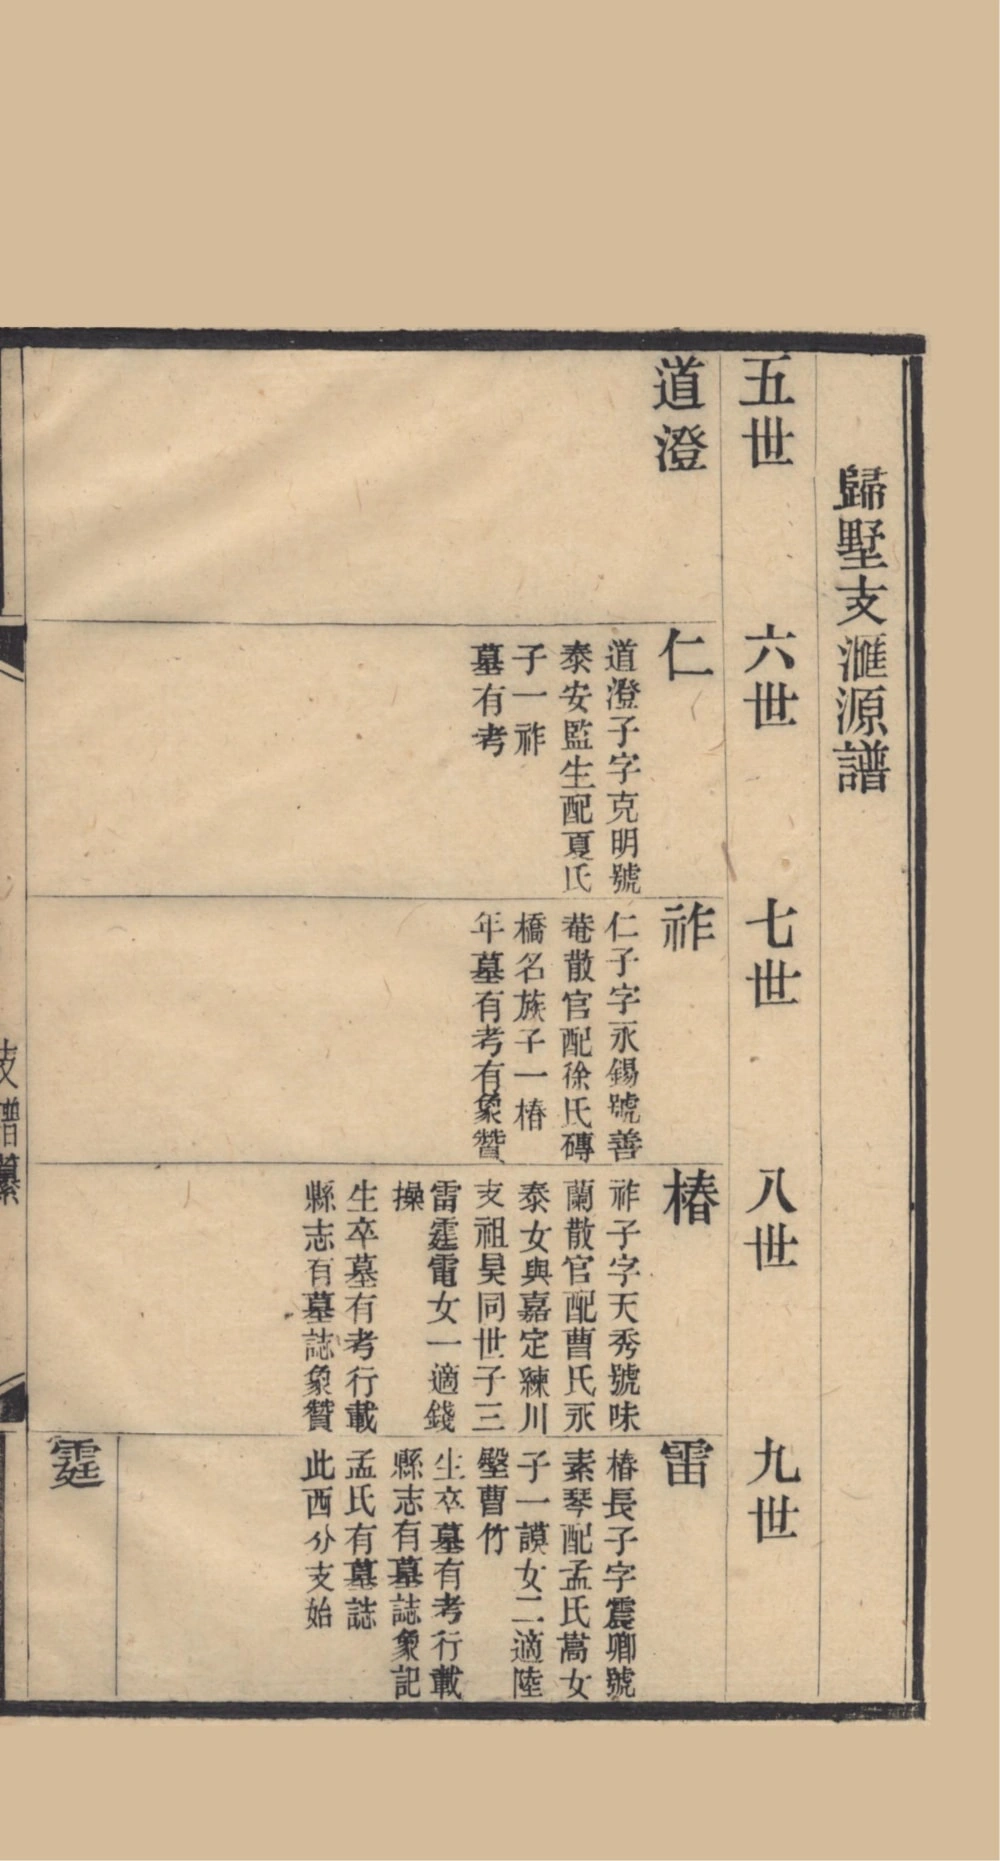 歸墅支滙源譜
五世
六世
七世
八世
九世
道澄
仁
道澄子字克明號
泰安監生配夏氏
子一祚
墓有考
祚
仁子字永錫號善
菴散官配徐氏磚
橋名族子一椿
年墓有考有象贊
椿
祚子字天秀號味
蘭散官配曹氏永
泰女與嘉定練川
支祖昊同世子三
雷霆電女一適錢
操
生卒墓有考行載
縣志有墓誌象贊
雷
椿長子字震卿號
素琴配孟氏嵩女
子一謨女二適陸
墾曹竹
生卒墓有考行載
縣志有墓誌象記
孟氏有墓誌
此西分支始
霆
支譜纂